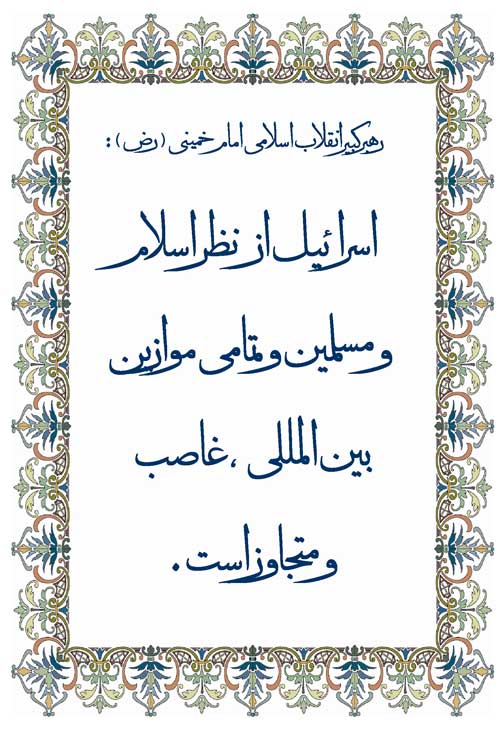 رهبر کبیر انقلاب اسلامی امام خمینی (رض) :
اسرائیل از نظر اسلام
و مسلمین و تمامی موازین
بین المللی ، غاصب
و متجاوز است .